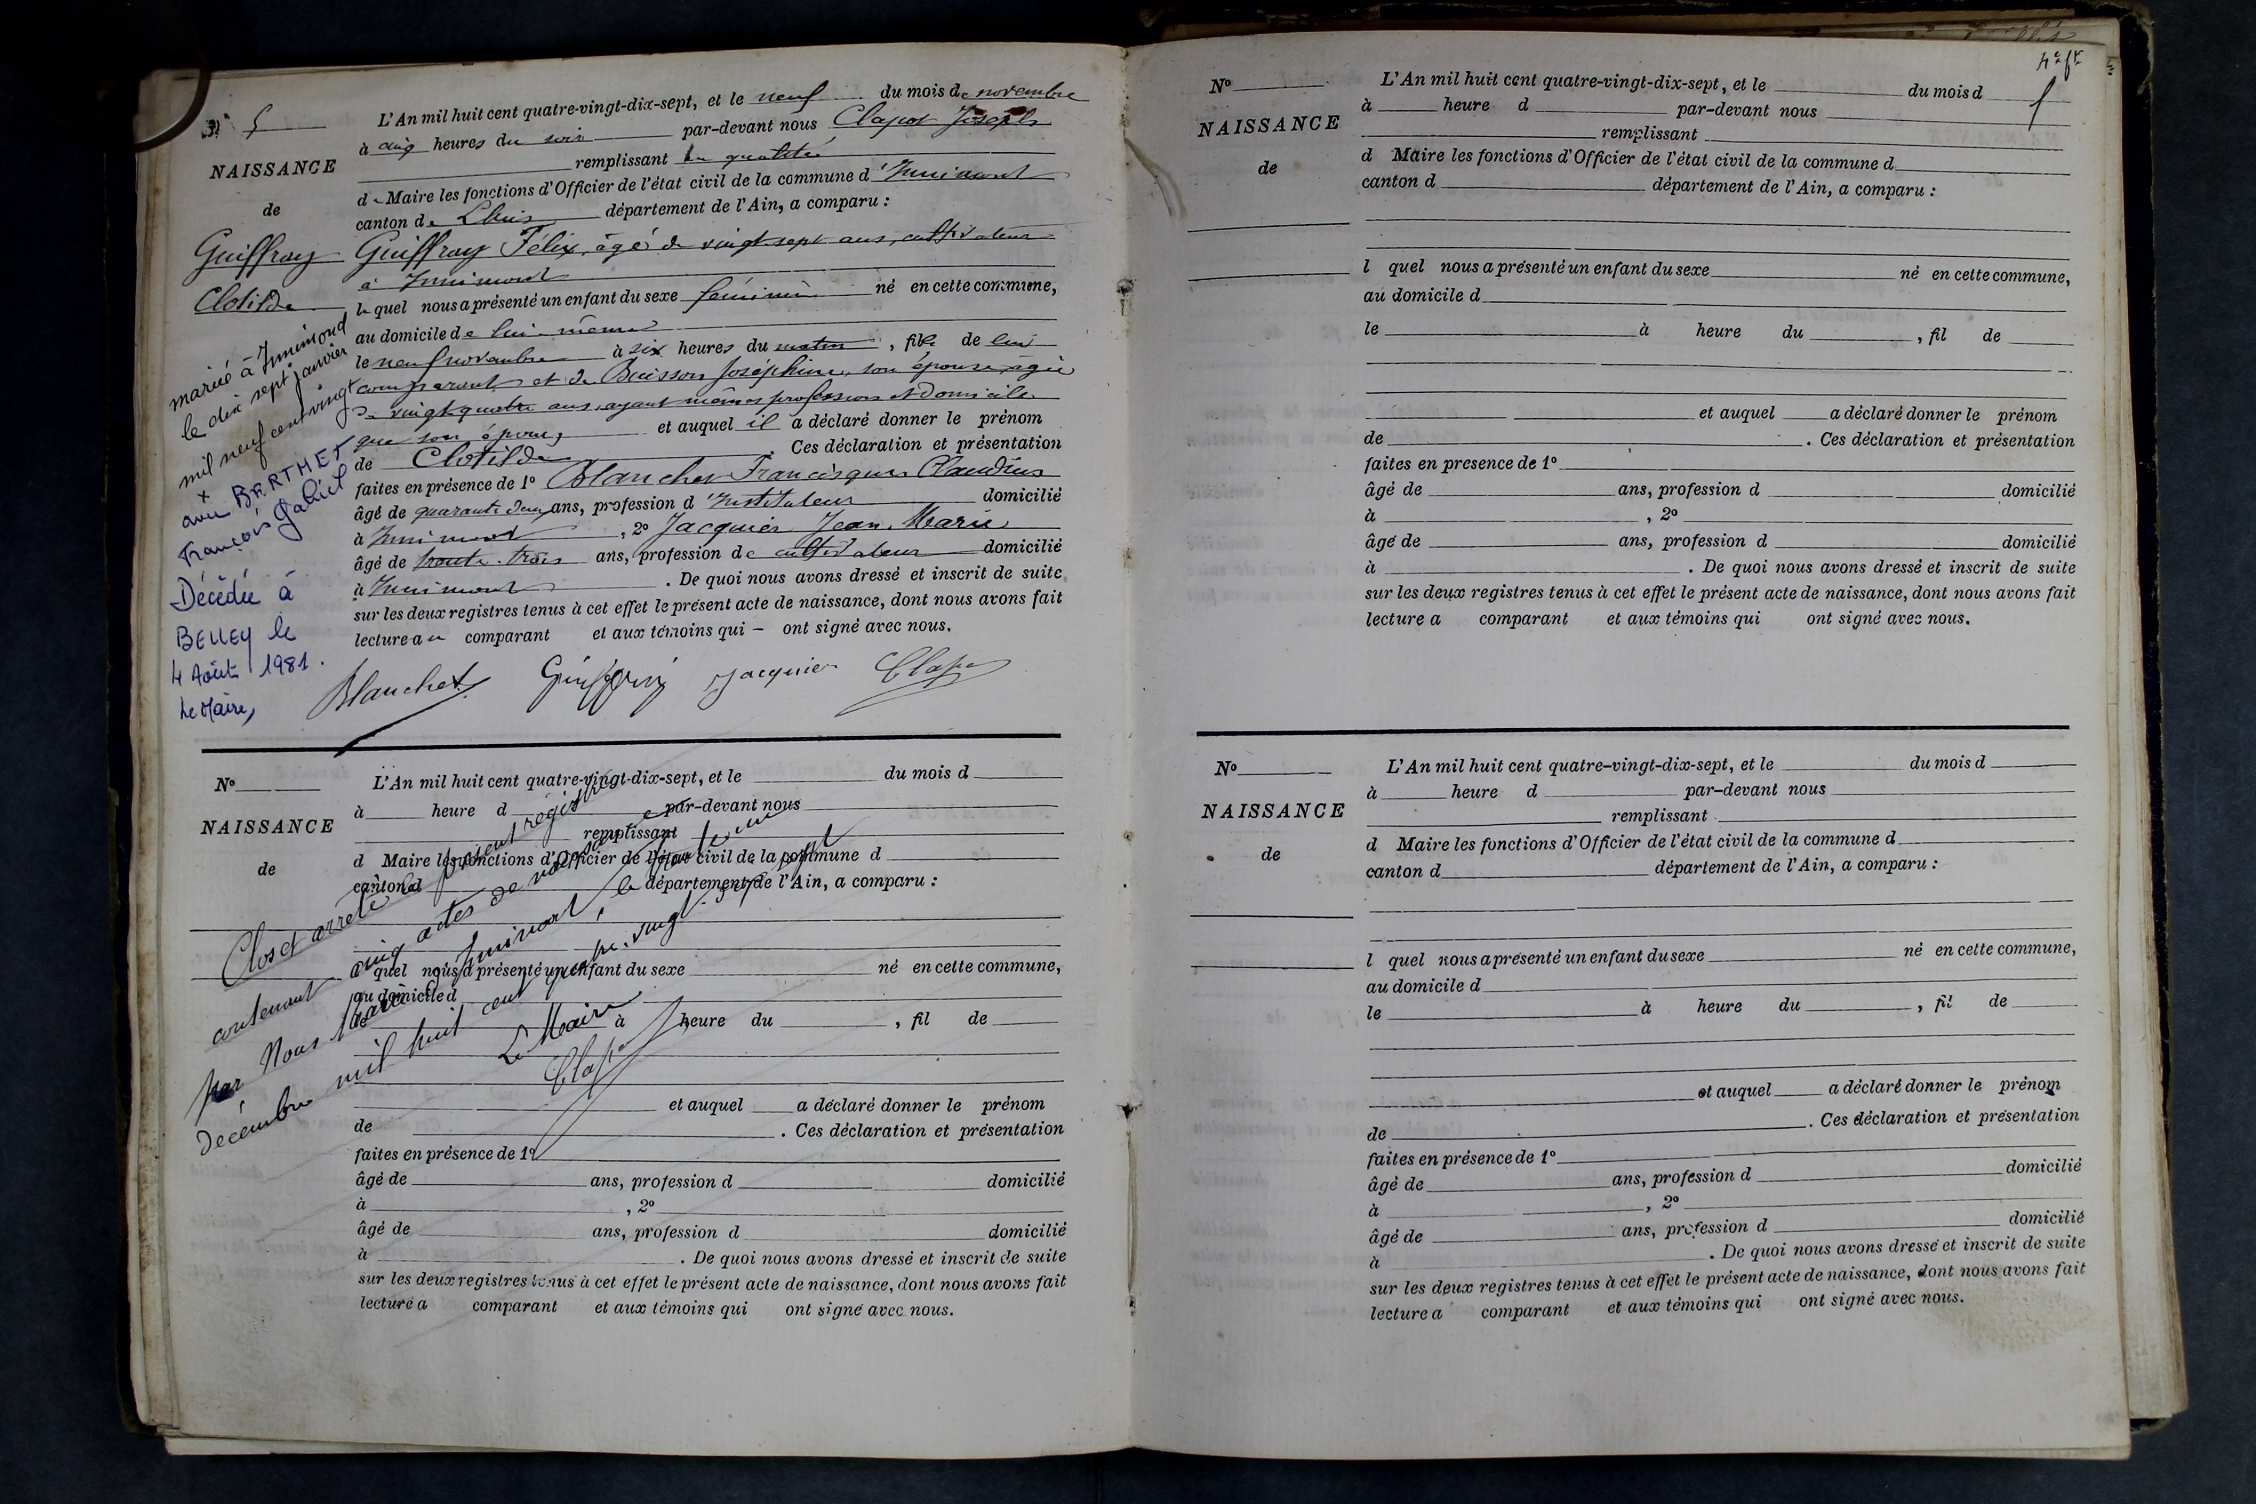 N° 5
NAISSANCE
de
Guiffray
Clotilde
mariée à Innimond
le dix sept janvier
mil neuf cent vingt
avec BERTHET
François Gabriel
Décédée à
BELLEY le
4 Août 1981.
Le Maire,
L'An mil huit cent quatre-vingt-dix-sept, et le neuf du mois de novembre
à cinq heures du soir par-devant nous Clapot Joseph
remplissant en qualité
de Maire les fonctions d'Officier de l'état civil de la commune d'Innimont
canton de Lhuis département de l'Ain, a comparu :
Guiffray Félix, âgé de vingt sept ans, cultivateur
à Innimont
lequel nous a présenté un enfant du sexe féminin né en cette commune,
au domicile de lui-même
le neuf novembre à six heures du matin, fille de lui
comparant et de Buisson Joséphine, son épouse, âgée
de vingt quatre ans, ayant mêmes profession et domicile
que son époux, et auquel il a déclaré donner le prénom
de Clotilde. Ces déclaration et présentation
faites en présence de 1° Blanchet Francisque Claudius
âgé de quarante deux ans, profession d'Instituteur domicilié
à Innimont, 2° Jacquier Jean Marie
âgé de trente-trois ans, profession de cultivateur domicilié
à Innimont. De quoi nous avons dressé et inscrit de suite
sur les deux registres tenus à cet effet le présent acte de naissance, dont nous avons fait
lecture au comparant et aux témoins qui - ont signé avec nous.
Blanchet Guiffray Jacquier Clapot
N°
NAISSANCE
de
L'An mil huit cent quatre-vingt-dix-sept, et le du mois d
à heure d par-devant nous
remplissant
d Maire les fonctions d'Officier de l'état civil de la commune d
canton d département de l'Ain, a comparu :
l quel nous a présenté un enfant du sexe né en cette commune,
au domicile d
le à heure du , fil de
et auquel a déclaré donner le prénom
de . Ces déclaration et présentation
faites en présence de 1°
âgé de ans, profession d domicilié
à , 2°
âgé de ans, profession d domicilié
à . De quoi nous avons dressé et inscrit de suite
sur les deux registres tenus à cet effet le présent acte de naissance, dont nous avons fait
lecture a comparant et aux témoins qui ont signé avec nous.
Clos et arrêté le présent registre
contenant cinq actes de naissance
par Nous Maire d'Innimont, le trente un
décembre mil huit cent quatre-vingt-dix-sept
Le Maire
Clapot
N°
NAISSANCE
de
L'An mil huit cent quatre-vingt-dix-sept, et le du mois d
à heure d par-devant nous
remplissant
d Maire les fonctions d'Officier de l'état civil de la commune d
canton d département de l'Ain, a comparu :
l quel nous a présenté un enfant du sexe né en cette commune,
au domicile d
le à heure du , fil de
et auquel a déclaré donner le prénom
de . Ces déclaration et présentation
faites en presence de 1°
âgé de ans, profession d domicilié
à , 2°
âgé de ans, profession d domicilié
à . De quoi nous avons dressé et inscrit de suite
sur les deux registres tenus à cet effet le présent acte de naissance, dont nous avons fait
lecture a comparant et aux témoins qui ont signé avec nous.
N°
NAISSANCE
de
L'An mil huit cent quatre-vingt-dix-sept, et le du mois d
à heure d par-devant nous
remplissant
d Maire les fonctions d'Officier de l'état civil de la commune d
canton d département de l'Ain, a comparu :
l quel nous a présenté un enfant du sexe né en cette commune,
au domicile d
le à heure du , fil de
et auquel a déclaré donner le prénom
de . Ces déclaration et présentation
faites en présence de 1°
âgé de ans, profession d domicilié
à , 2°
âgé de ans, profession d domicilié
à . De quoi nous avons dressé et inscrit de suite
sur les deux registres tenus à cet effet le présent acte de naissance, dont nous avons fait
lecture a comparant et aux témoins qui ont signé avec nous.